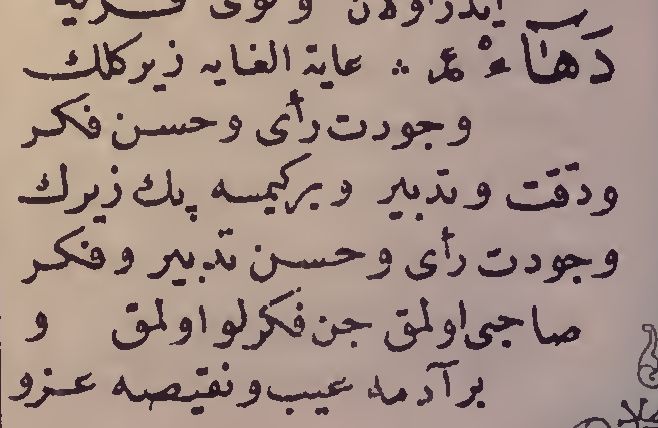 ايدر اولان و نوى
دَهَاءْ ع ∴ غاية الغايه زيركلك
وجودت رأى وحسن فكر
ودقت وتدبير وبركيمسه پك زيرك
وجودت رأى وحسن تدبير وفكر
صاحبى اولمق جن فكرلو اولمق و
بر آدمه عيب ونقيصه عزو